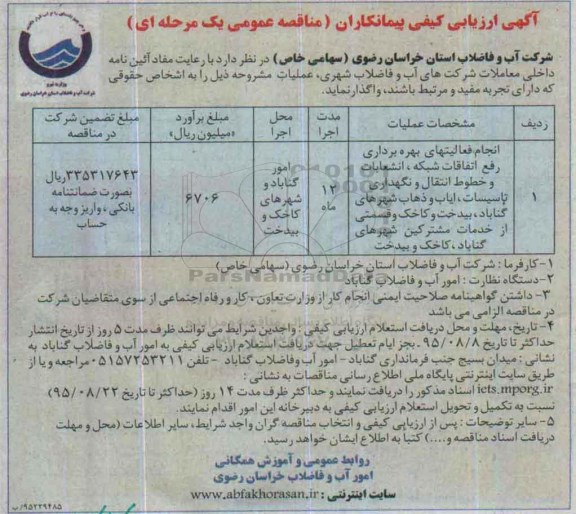 آگهی ارزیابی کیفی پیمانکاران (مناقصه عمومی یک مرحله ای)
وزارت نیرو
شرکت آب و فاضلاب استان خراسان رضوی
شرکت آب و فاضلاب استان خراسان رضوی (سهامی خاص) در نظر دارد با رعایت مفاد آئین نامه
داخلی معاملات شرکت های آب و فاضلاب شهری، عملیات مشروحه ذیل را به اشخاص حقوقی
که دارای تجربه مفید و مرتبط باشند، واگذار نماید.
ردیف | مشخصات عملیات | مدت اجرا | محل اجرا | مبلغ برآورد «میلیون ریال» | مبلغ تضمین شرکت در مناقصه
۱
انجام فعالیتهای بهره برداری
رفع اتفاقات شبکه، انشعابات
و خطوط انتقال و نگهداری
تاسیسات، ایاب و ذهاب شهرهای
گناباد، بیدخت و کاخک و قسمتی
از خدمات مشترکین شهرهای
گناباد، کاخک و بیدخت
۱۲
ماه
امور
گناباد و
شهرهای
کاخک و
بیدخت
۶۷۰۶
۳۳۵۳۱۷۶۴۳ریال
بصورت ضمانتنامه
بانکی، واریز وجه به
حساب
۱-کارفرما: شرکت آب و فاضلاب استان خراسان رضوی (سهامی خاص)
۲-دستگاه نظارت: امور آب و فاضلاب گناباد
۳- داشتن گواهینامه صلاحیت ایمنی انجام کار از وزارت تعاون، کار و رفاه اجتماعی از سوی متقاضیان شرکت
در مناقصه الزامی می باشد
۴- تاریخ، مهلت و محل دریافت استعلام ارزیابی کیفی: واجدین شرایط می توانند ظرف مدت ۵ روز از تاریخ انتشار
حداکثر تا تاریخ ۹۵/۰۸/۸ بجز ایام تعطیل جهت دریافت استعلام ارزیابی کیفی به امور آب و فاضلاب گناباد به
نشانی: میدان بسیج جنب فرمانداری گناباد - امور آب و فاضلاب گناباد - تلفن ۰۵۱۵۷۲۵۳۲۱۱ مراجعه و یا از
طریق سایت اینترنتی پایگاه ملی اطلاع رسانی مناقصات به نشانی:
iets.mporg.ir اسناد مذکور را دریافت نمایند و حداکثر ظرف مدت ۱۴ روز (حداکثر تا تاریخ ۹۵/۰۸/۲۲)
نسبت به تکمیل و تحویل استعلام ارزیابی کیفی به دبیرخانه این امور اقدام نمایند.
۵- سایر توضیحات: پس از ارزیابی کیفی و انتخاب مناقصه گران واجد شرایط، سایر اطلاعات (محل و مهلت
دریافت اسناد مناقصه و....) کتبا به اطلاع ایشان خواهد رسید.
روابط عمومی و آموزش همگانی
امور آب و فاضلاب خراسان رضوی
سایت اینترنتی: www.abfakhorasan.ir
۹۵۲۲۹۴۸۵/ب
ParsNamadData